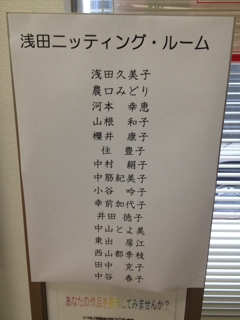 浅田ニッティング・ルーム
浅田久美子
農口みどり
河本 幸恵
山根 和子
櫻井 康子
住 豊子
中村 絹子
中筋紀美子
小谷 吟子
幸前加代子
井田 德子
中山とよ美
東出 房江
西山都季枝
田中 克子
中谷 春子
あなたの作品を展示してみませんか?